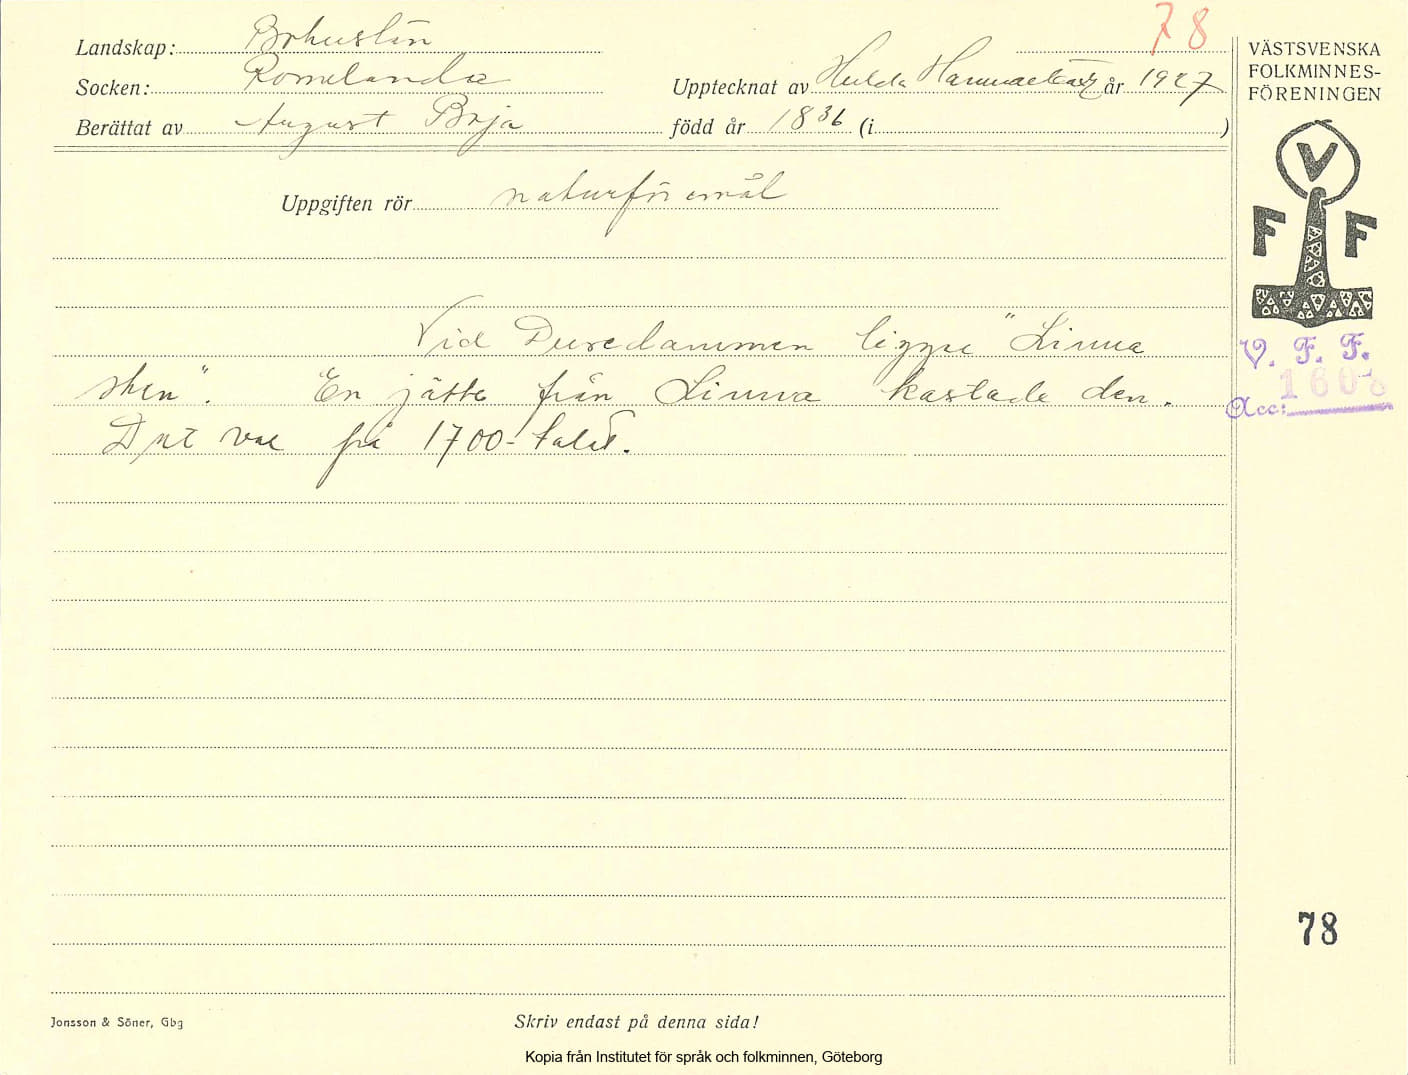 78
Landskap: Bohuslän
Socken: Romelanda
Upptecknat av Hulda Hammarbäck år 1927
Berättat av August Brja
född år 1836 (i )
VÄSTSVENSKA
FOLKMINNES-
FÖRENINGEN
V
F F
Uppgiften rör naturföremål
Vid Duredammen ligger "Linna
sten". En jätte från Linna kastade den.
Det var på 1700-talet.
V. F. F.
Acc: 1608
78
Jonsson & Söner, Gbg
Skriv endast på denna sida!
Kopia från Institutet för språk och folkminnen, Göteborg